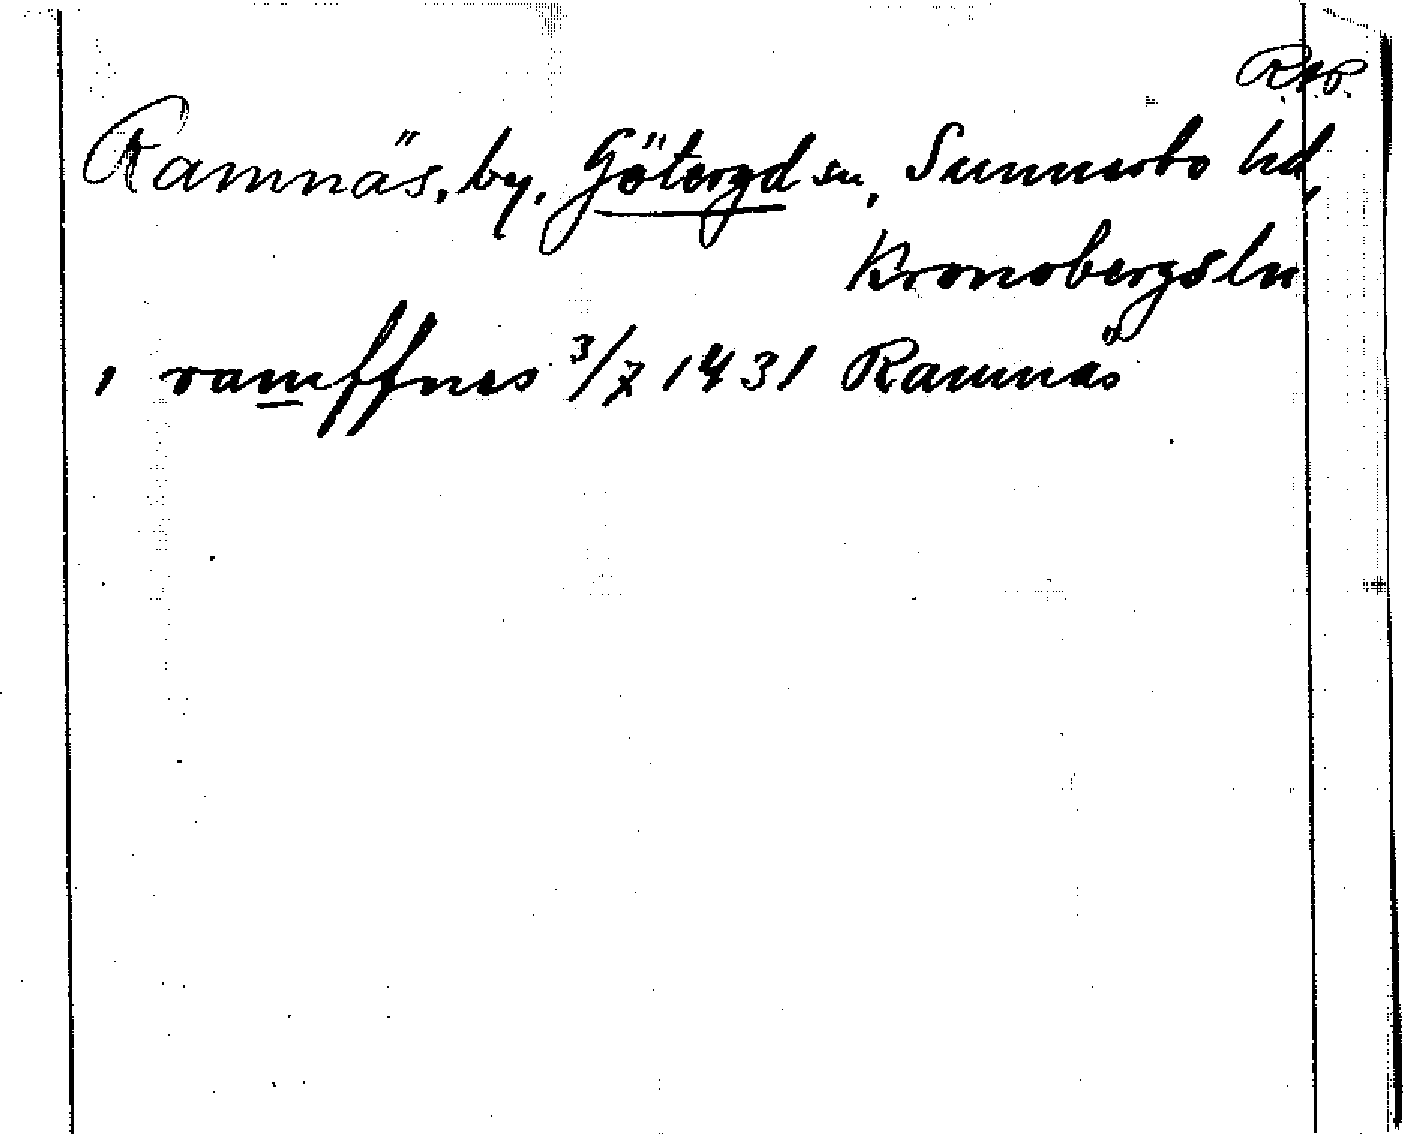 R.A.P.
Ramnäs, by, Götergd sn, Sunnerbo hd,
Kronobergs ln
, ramffnes 3/7 1431 Ramnäs